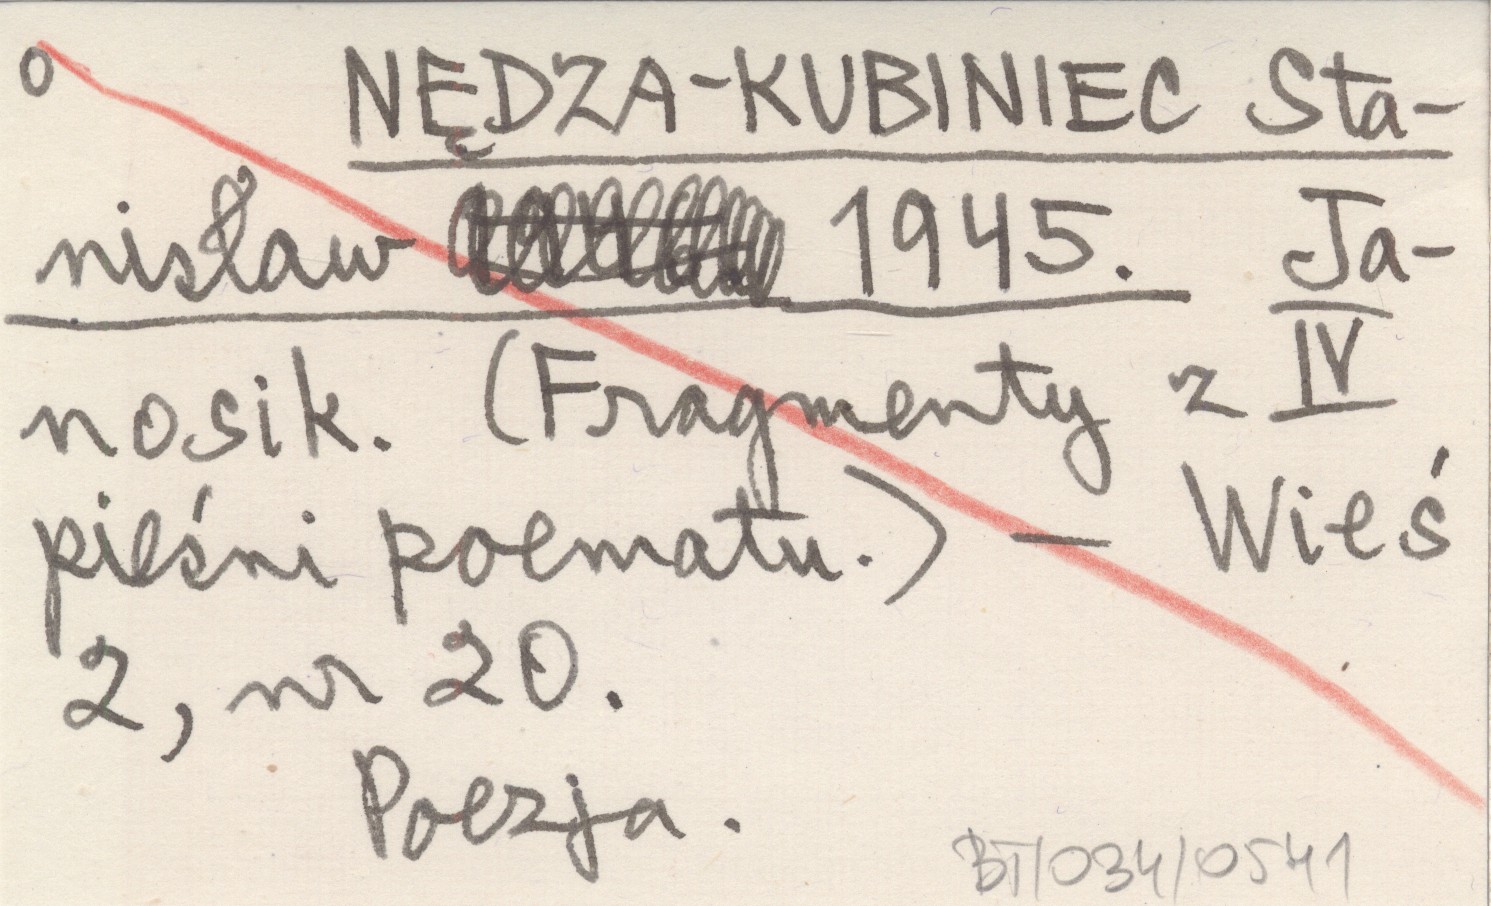 o NĘDZA-KUBINIEC Sta-
nisław 1945. Ja-
nosik. (Fragmenty z IV
pieśni poematu.) — Wieś
2, nr 20.
Poezja.
BT/034/0541